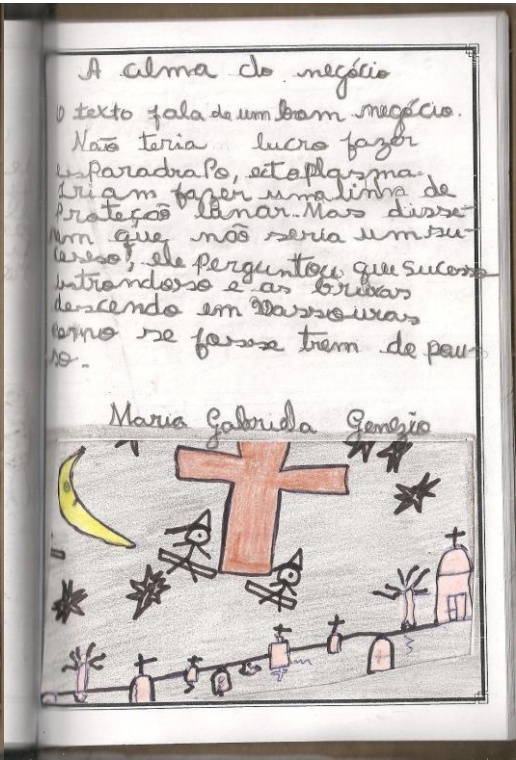 A alma do negócio
O texto fala de um bom negócio.
Não teria lucro fazer
esParadraPo, ectoplasma.
Iriam fazer uma linha de
Proteção lunar. Mas disse-
ram que não seria um su-
cesso!, ele Perguntou que sucesso
estrondoso e as bruxas
descendo em Vassouras
como se fosse trem de pou-
so.
Maria Gabriela Genezio